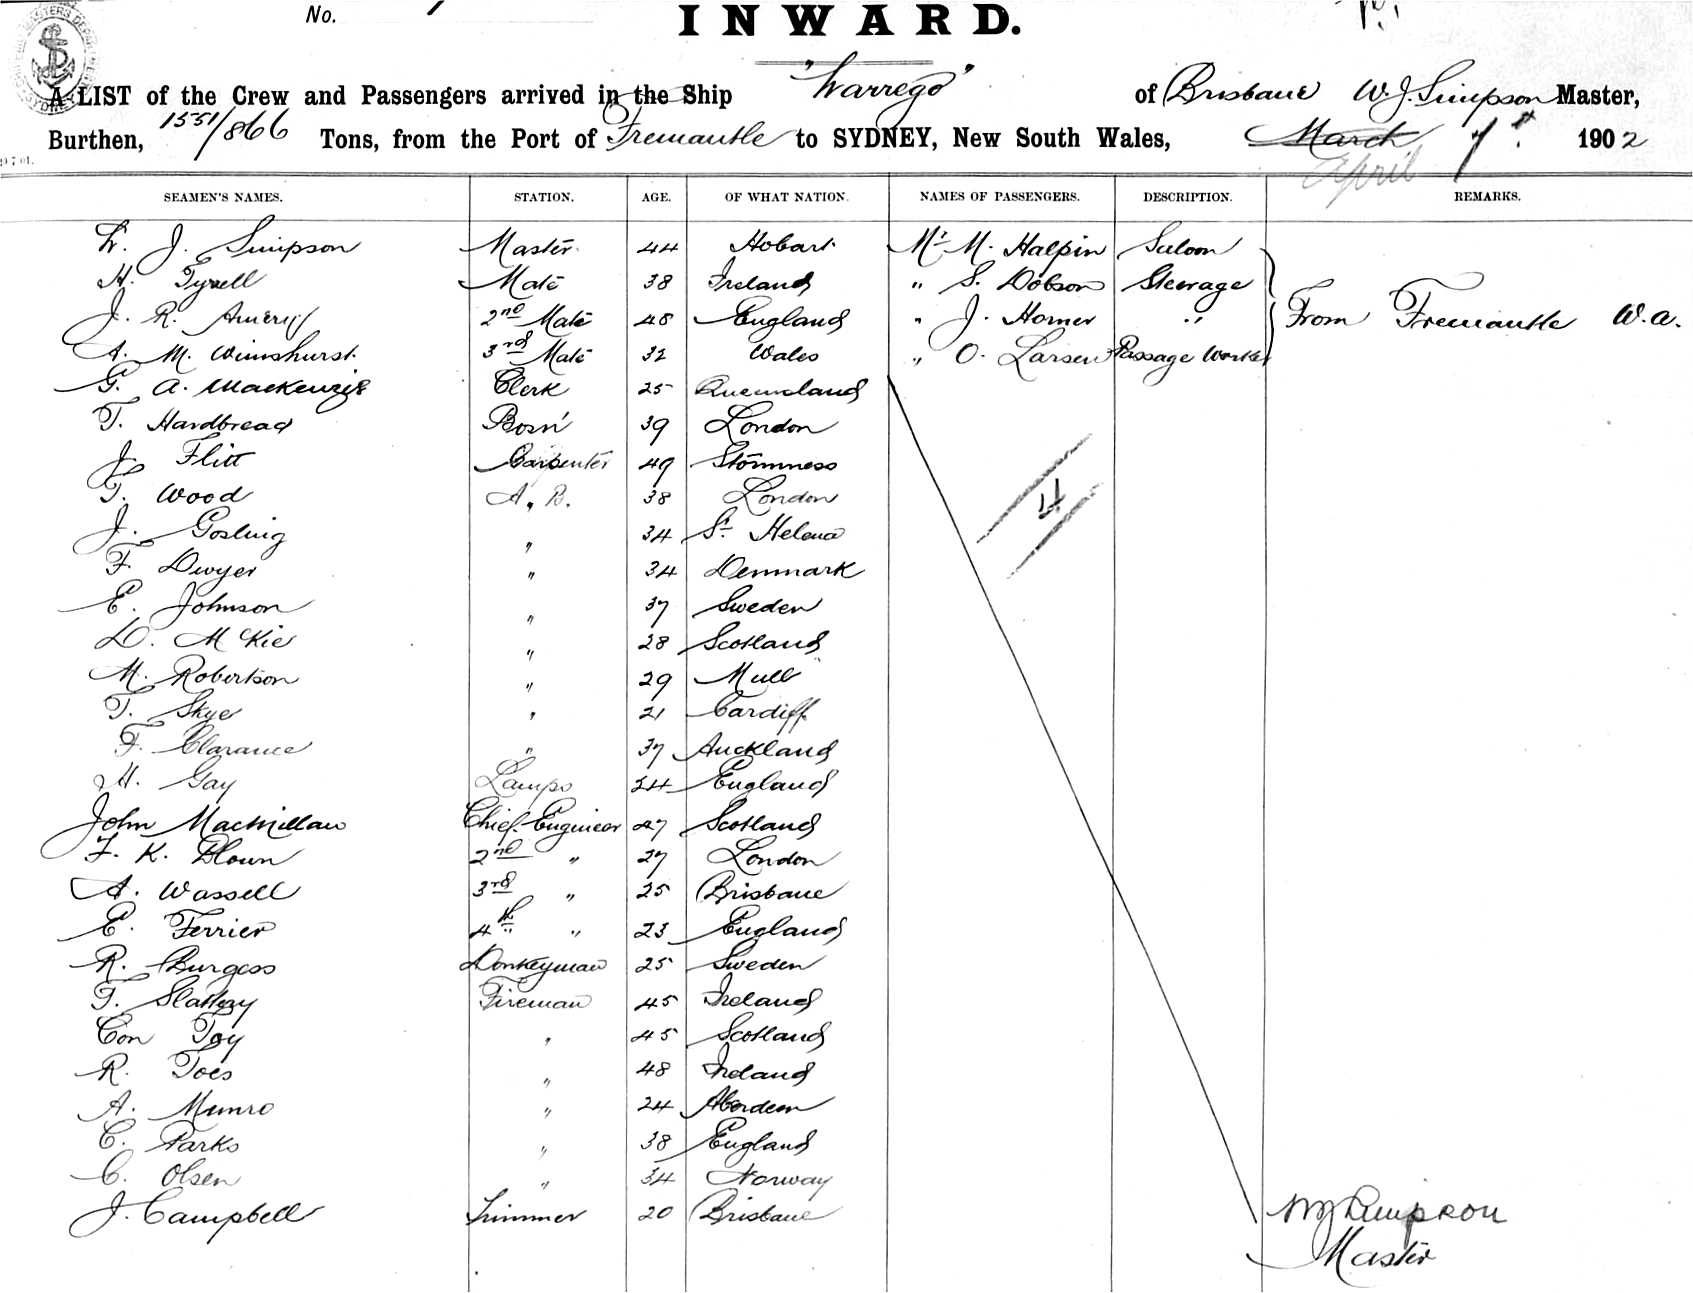 No. 1
INWARD.
A LIST of the Crew and Passengers arrived in the Ship "Warrego" of Brisbane W. J. Simpson Master,
Burthen, 1551/866 Tons, from the Port of Fremantle to SYDNEY, New South Wales, March April 1st 1902
SEAMEN'S NAMES. STATION. AGE. OF WHAT NATION. NAMES OF PASSENGERS. DESCRIPTION. REMARKS.
W. J. Simpson Master 44 Hobart Mr M. Halpin Saloon
H. Tyrell Mate 38 Ireland " S. Dobson Steerage
J. R. Amery 2nd Mate 48 England " J. Homer " From Fremantle W.A.
A. M. Wimshurst 3rd Mate 32 Wales " O. Larsen Passage Worker
G. A. Mackenzie Clerk 25 Queensland
T. Hardbread Bosn' 39 London
J. Flitt Carpenter 49 Stomness
T. Wood A. B. 38 London 4
J. Gosling " 34 St Helena
F. Dwyer " 34 Denmark
E. Johnson " 37 Sweden
D. McKie " 28 Scotland
M. Robertson " 29 Mull
T. Skye " 21 Cardiff
F. Clarance " 37 Auckland
H. Gay Lamps 24 England
John MacMillan Chief Engineer 47 Scotland
F. K. 2nd " 27 London
A. Wassell 3rd " 25 Brisbane
E. Ferrier 4th " 23 England
R. Burgess Donkeyman 25 Sweden
T. Slattery Fireman 45 Ireland
Con Toy " 45 Scotland
R. Toes " 48 Ireland
A. Munro " 24 Aberdeen
C. Parks " 38 England
C. Olsen " 34 Norway
J. Campbell Trimmer 20 Brisbane WJ Simpson
Master